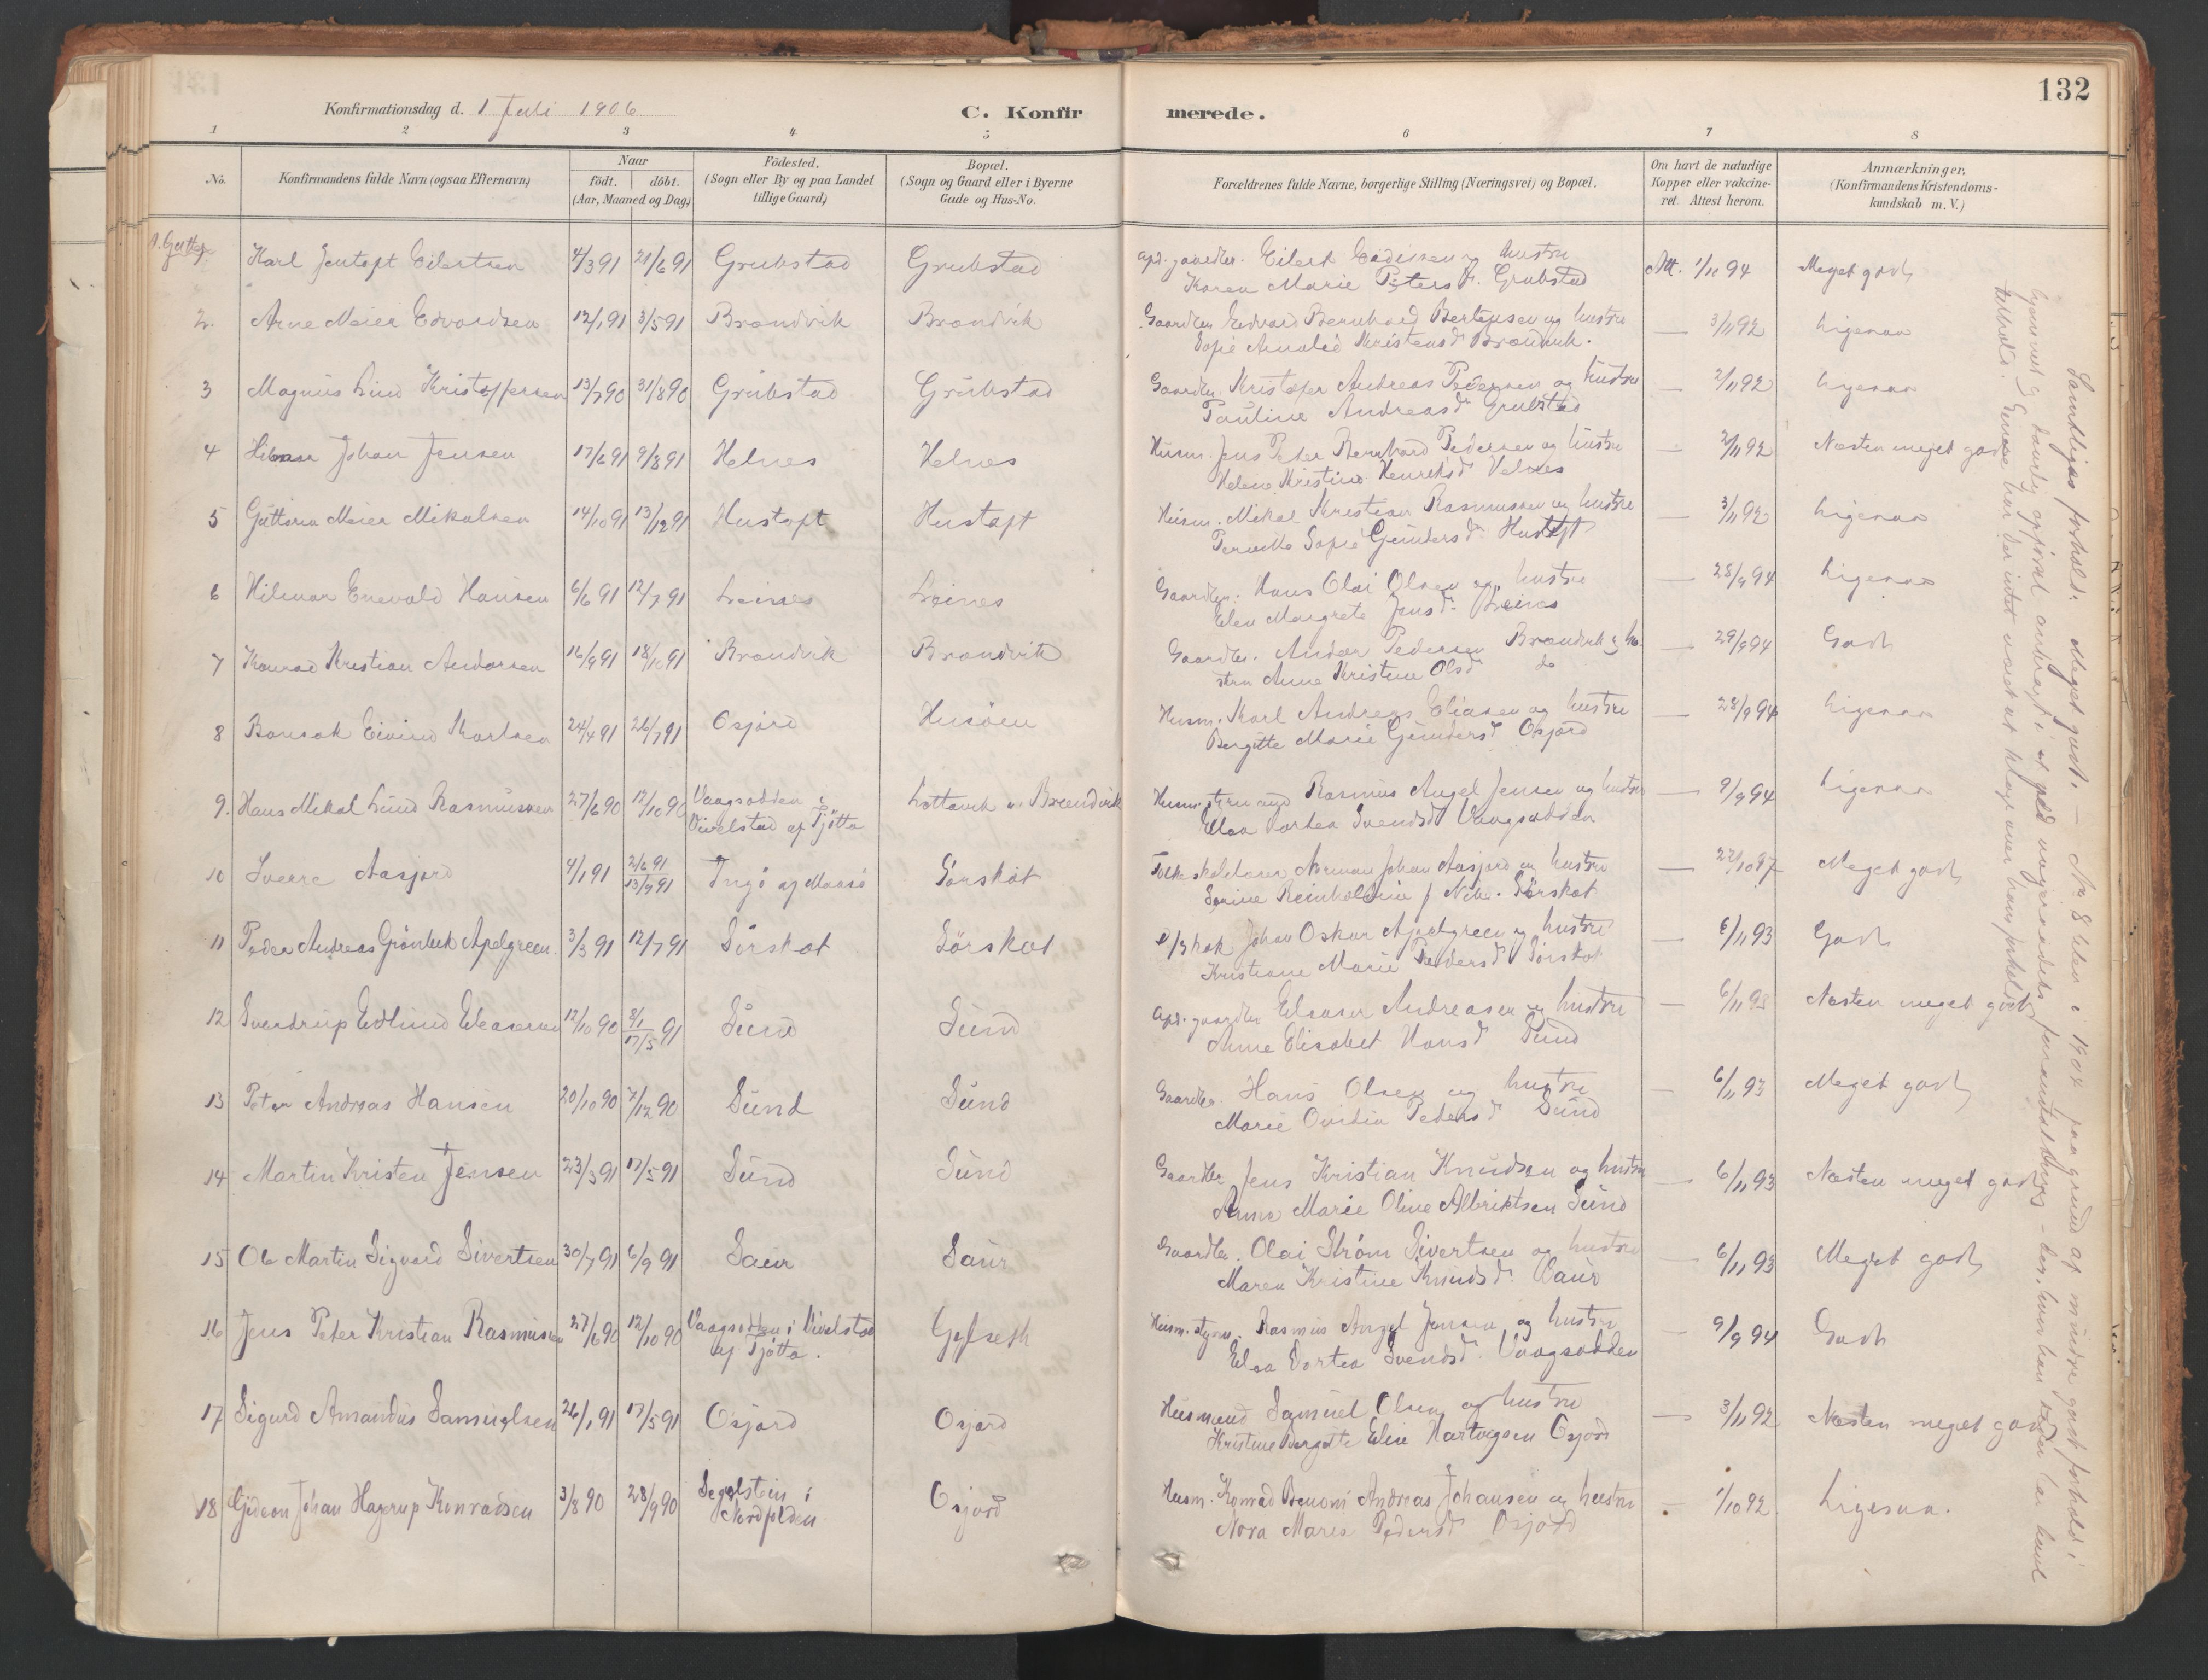 132
Konfirmationsdag d. 1 Juli 1906
C. Konfir
merede.
1 2 3 4 5 6 7 8
No.
Konfirmandens fulde Navn (ogsaa Efternavn)
Naar
födt. döbt.
(Aar, Maaned og Dag)
Födested.
(Sogn eller By og paa Landet
tillige Gaard)
Bopæl.
(Sogn og Gaard eller i Byerne
Gade og Hus-No.
Forældrenes fulde Navne, borgerlige Stilling (Næringsvei) og Bopæl.
Om havt de naturlige
Kopper eller vakcine-
ret. Attest herom.
Anmærkninger,
(Konfirmandens Kristendoms-
kundskab m. V.)
1. Gutter
1 Karl Jentoft Eilertsen 4/3 91 21/6 91 Grubstad Grubstad gaardbr. Eilert hustru Att. Meget godt
Karen Marie Peters d. Grubstad
2. Arne Meier Edvardsen 12/1 91 3/5 91 Brandvik Brandvik Gaardbr Edvard Bernhard Berteusen og hustru — 3/11 92 Ligesaa
Sofie Amalie Kristensd. Brandvik.
3 Magnus Lind Kristoffersen 13/7 90 31/8 90 Grubstad Grubstad Gaardbr. Kristofer Andreas Pedersen og hustru — 2/11 92 Ligesaa
Pauline Andreasd Grubstad
4 Johan Jensen 17/6 91 9/8 91 Helnes Helnes Husm. Jens Peter Bernhard Pedersen og hustru — 2/11 92 Næsten meget godt
Helene Kristine Henriksd Helnes
5 Guttorm Meier Mikalsen 14/10 91 13/12 91 Hustoft Hustoft Husm. Mikal Kristian Rasmussen og hustru — 3/11 92 Ligesaa
Sofie Gunders d. Hustoft
6 Hilmar Enevold Hansen 6/6 91 12/7 91 Leines Leines Gaardbr. Hans Olai Olsen og hustru — 28/9 94 Ligesaa
Elen Margrete Jensd. Leines
7 Konrad Kristian Andorsen 16/9 91 18/10 91 Brandvik Brandvik Gaardbr. Andor Pedersen Brandvik og hu- — 29/9 94 Godt
stru Anne Kristine Olsd do
8 Eivind Karlsen 24/4 91 26/7 91 Osjord Husöen Husm. Karl Andreas Eliasen og hustru — 28/9 94 Ligesaa
Bergitte Marie Gundersd Osjord
9. Hans Mikal Lund Rasmussen 27/6 90 12/10 90 Vaagsodden i Brandvik Husm. Rasmus Angel Jensen og hustru — 9/9 94 Ligesaa
Vivelstad af Tjötta Elea Dortea Svendsd Vaagsodden
10 Sverre Aasjord 4/1 91 2/6 91 Ingö af Maasö Sörskot Johan Aasjord og hustru — Meget godt
13/9 91 Sörskot
11 Peder Andreas Grönbek Apelgreen 3/3 91 12/7 91 Sörskot Sörskot Johan Oskar Apelgreen og hustru — 6/11 93 Godt
Kristiane Marie Pedersd Sörskot
12 Sverdrup Edlund Eleasersen 12/10 90 8/1 Sund Sund gaardbr Eleaser Andreasen og hustru — 6/11 93 Næsten meget godt
17/5 91 Anne Elisabet Hansd Sund
13 Peter Andreas Hansen 20/10 90 7/12 90 Sund Sund Gaardbr. Hans Olsen og hustru — 6/11 93 Meget godt
Marie Ovidia Pedersd Sund
14 Martin Kristen Jensen 23/3 91 17/5 91 Sund Sund Gaardbr Jens Kristian Knudsen og hustru — 6/11 93 Næsten meget godt
Anna Marie Oline Albriktsen Sund
15 Ole Martin Sigvard Sivertsen 30/7 91 6/9 91 Saur Saur Gaardbr. Olai Ström Sivertsen og hustru — 6/11 93 Meget godt
Maren Kristine Knudsd. Saur
16 Jens Peter Kristian Rasmussen 27/6 90 12/10 90 Vaagsodden i Vivelstad Husm. Rasmus Angel Jensen og hustru — 9/9 94 Godt
af Tjötta. Elea Dortea Svendsd. Vaagsodden
17 Sigurd Amandus Samuelsen 26/1 91 17/5 91 Osjord Osjord Husmand Samuel Olsen og hustru — 3/11 92 Næsten meget godt
Kristine Bergitte Elie Hartvigsen Osjord
18 Gideon Johan Hagerup Konradsen 3/8 90 28/9 90 Segelstein i Osjord Husm. Konrad Benoni Andreas Johansen og hustru — 1/10 92 Ligesaa.
Nordfolden Nora Marie Pedersd Osjord
Samtliges forhold: Meget godt. — No 8 blev i 1904 paa grund af mindre godt forhold i